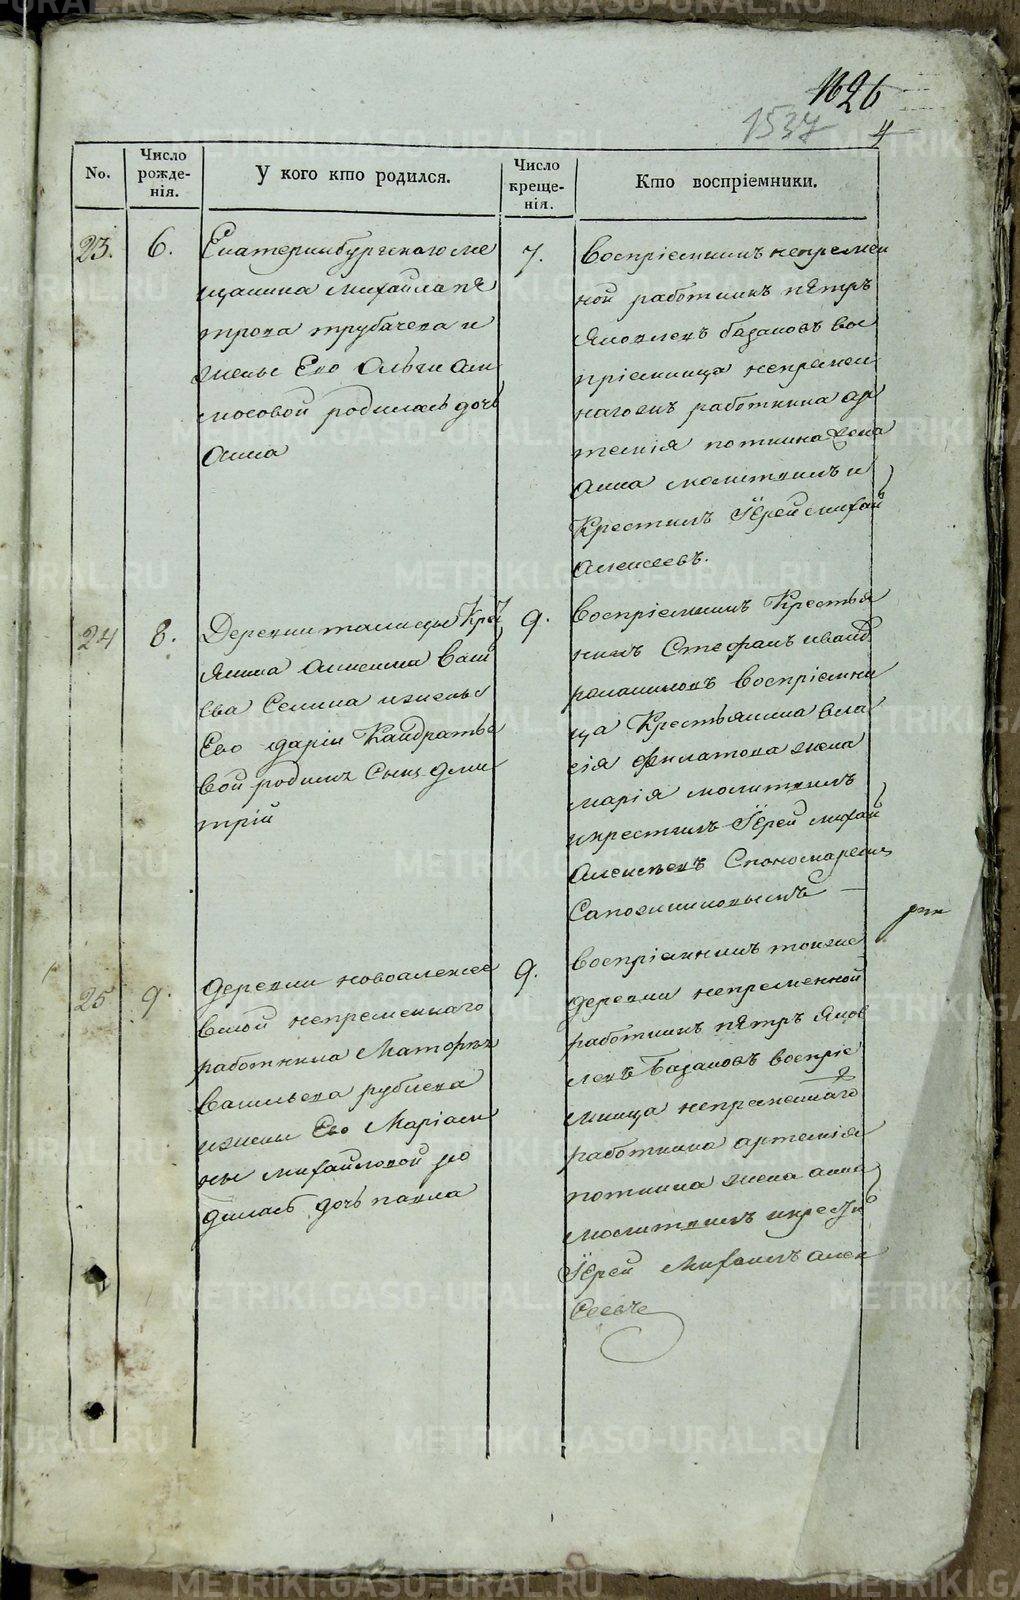 1626
1537
4
No.
Число
рожде-
нія.
У кого кто родился.
Число
креще-
нія.
Кто воспріемники.
23.
6.
Екатеринбургскаго ме
щанина Михайла пе
трова трубачева и
жены Его Ольги
мосовой родилась дочь
Анна
7.
воспріемникъ непремен
ной работникъ пЕтръ
Яковлевъ базановъ вос
пріемница непремен
работника ар
темія поткина жена
анна молитвилъ и
Крестилъ Іерей михай
Алексеевъ.
24
8.
Деревни талицы Кре
янина Васи
ева Селина и жены
Его дарьи Кандратье
вой родился Сынъ дми
трій
9.
воспріемникъ Крестья
нинъ Стефанъ ивано
воспріемни
ца Крестьянина вла
сія филатова жена
марія молитвилъ
и крестилъ Іерей михай
Алексеевъ Спономаремъ
Сапожниковымъ
25
9.
деревни новоалексее
вской непременнаго
работника
Васильева рублева
и жены Его Маріам
ны михайловой ро
дилась дочь павла
9.
воспріемникъ тояже
деревни непременной
работникъ пЕтръ Яков
левъ Базановъ воспріе
мница непременнаго
работника артемія
поткина жена анна
молитвилъ и крести
Іерей Михаилъ алек
сеевъ
METRIKI.GASO-URAL.RU